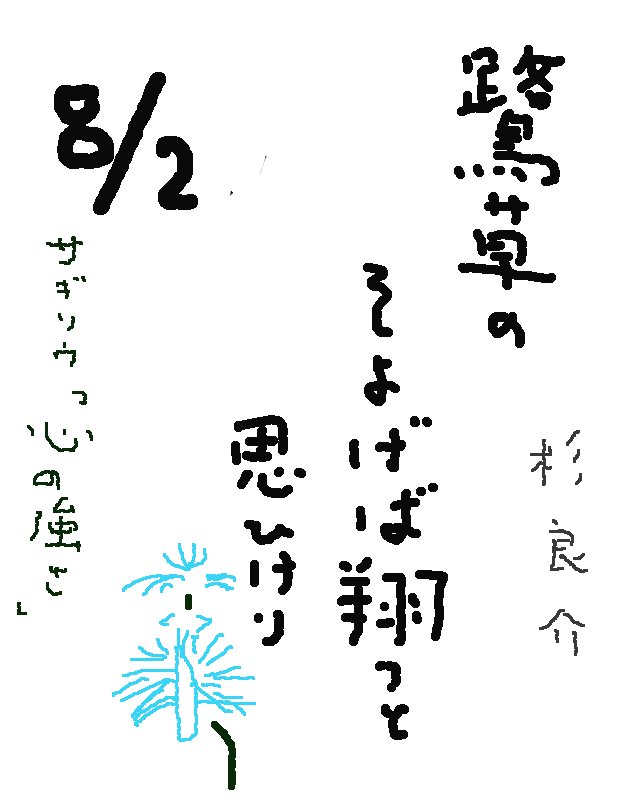 鷺草の
そよげば翔つと
思ひけり
杉良介
8/2
サギソウ「心の強さ」